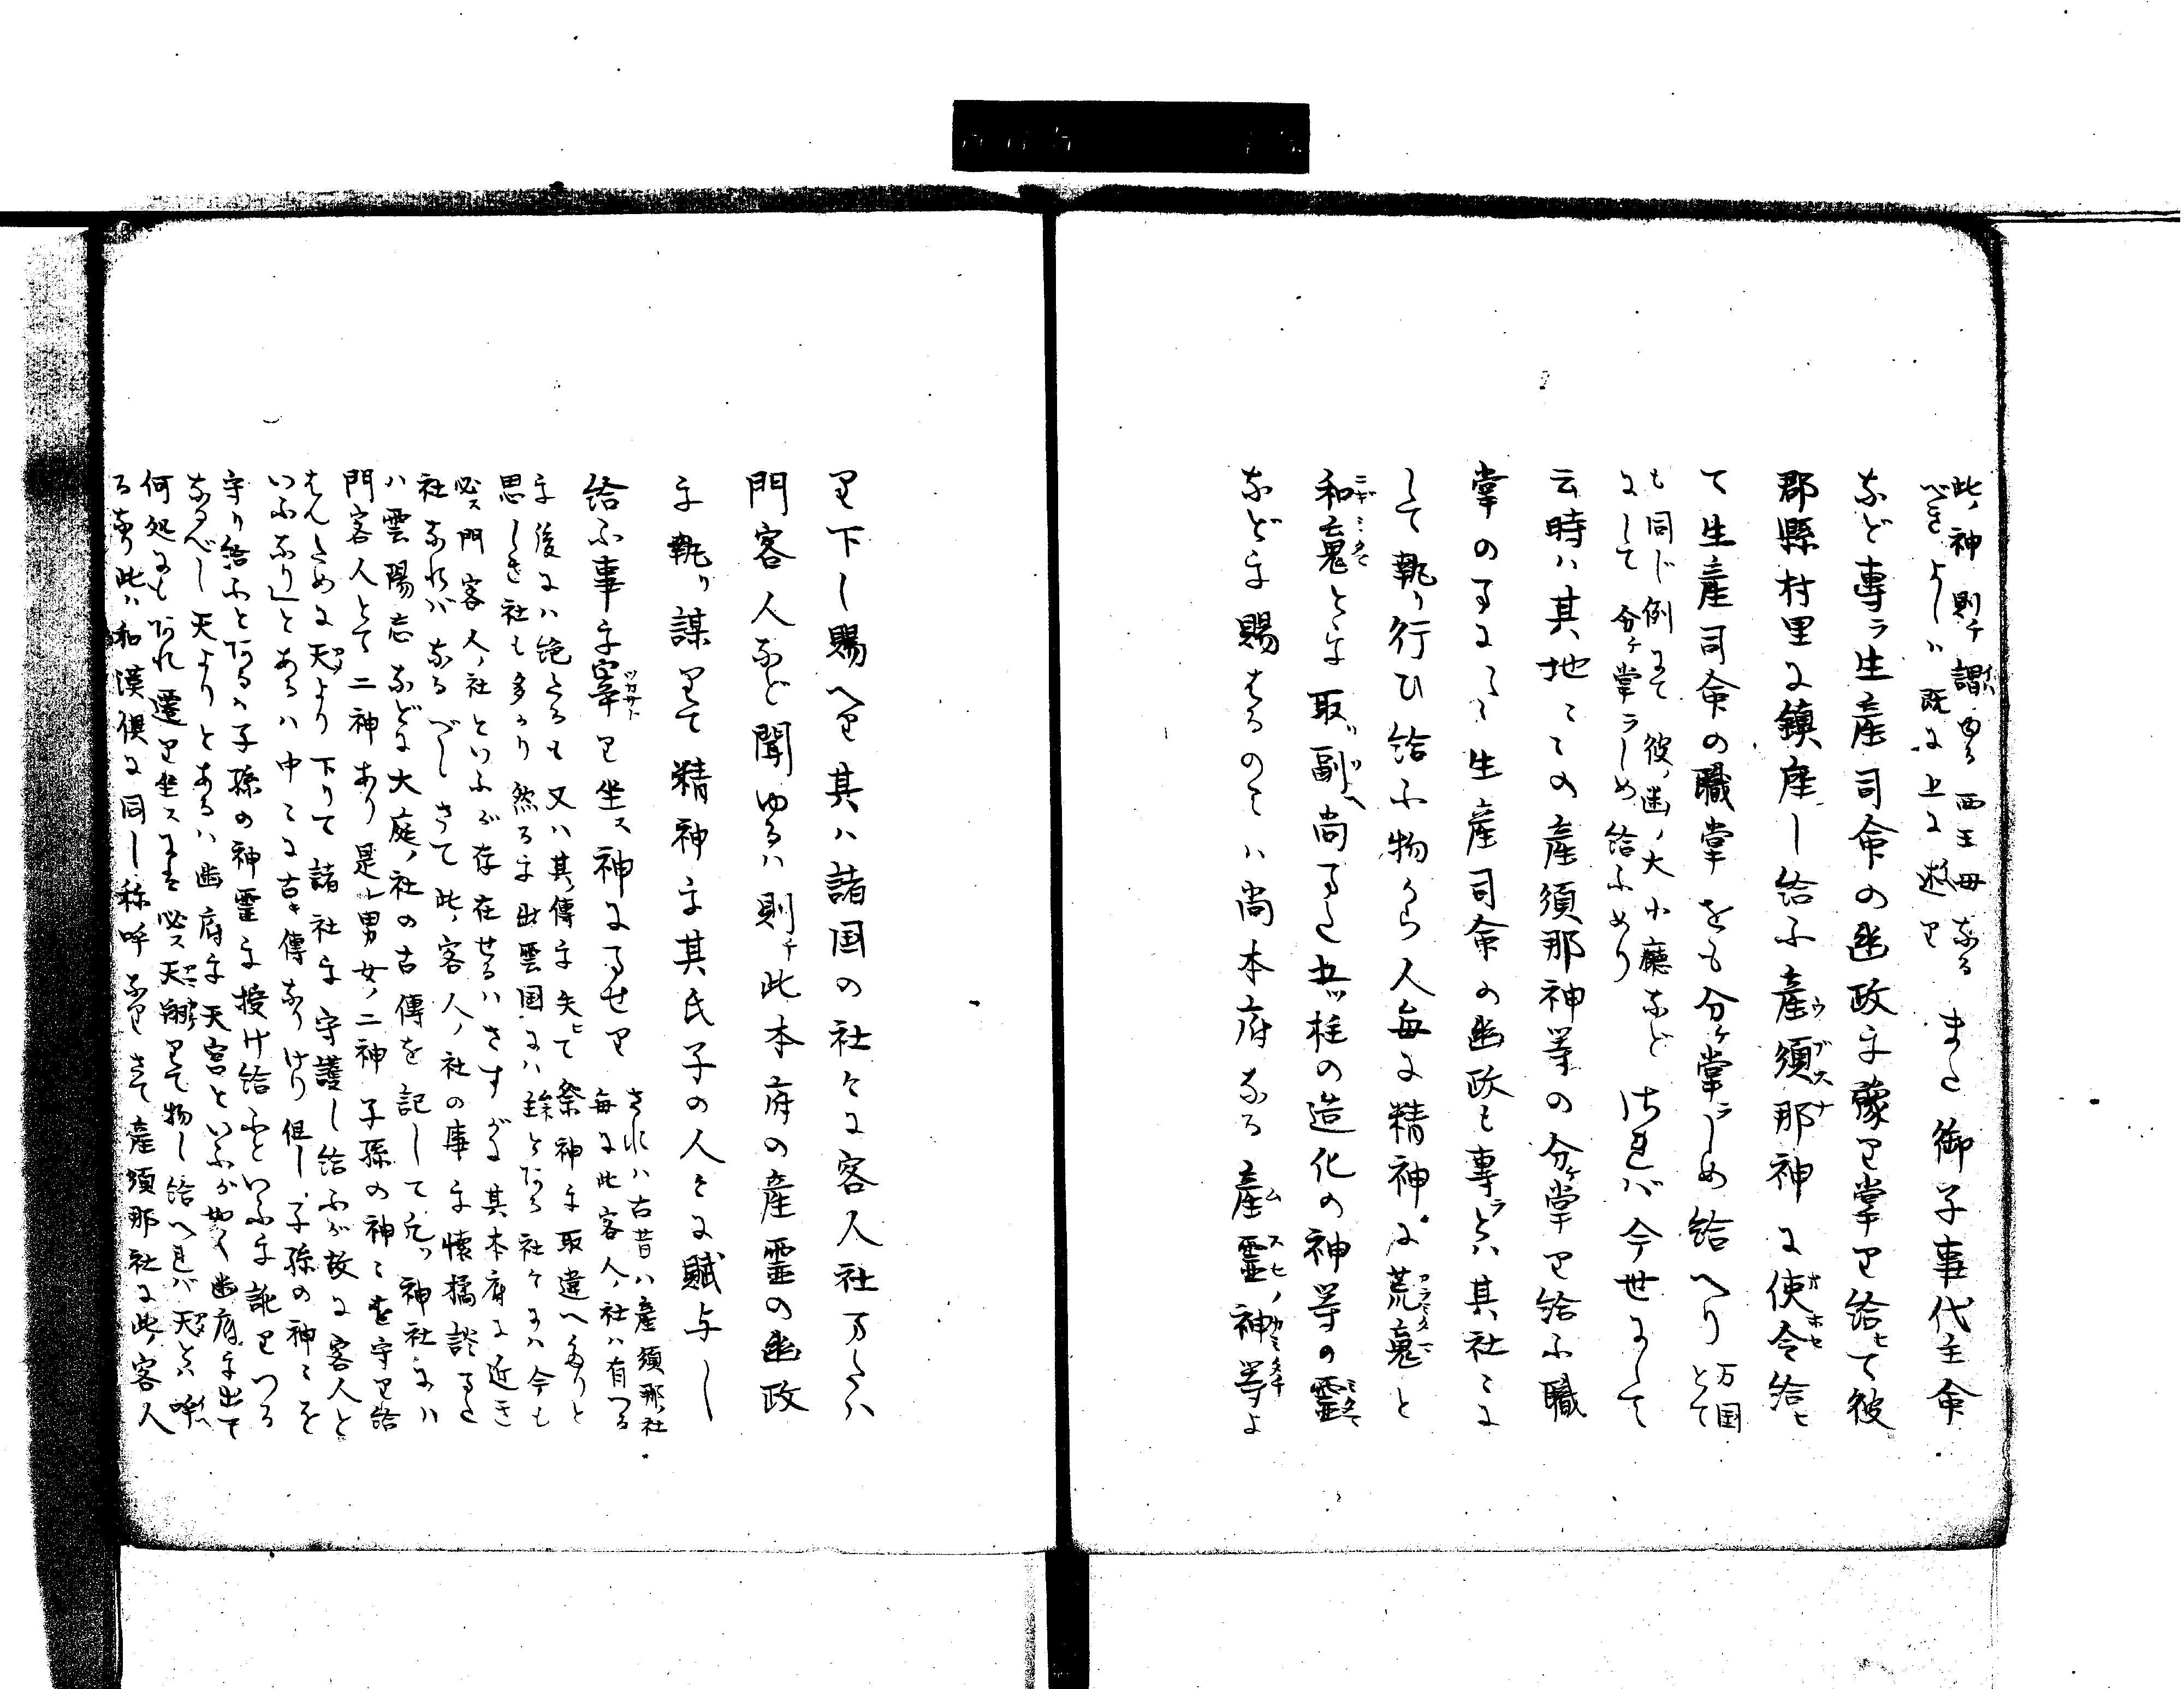 此ノ神則チ謂ゆる西王母なる
べきよしハ既に上に述り
また御子事代主命
など専ラ生産司命の幽政を豫り掌り給ヒて彼
郡縣村里に鎮座し給ふ産須那神に使令給ヒ
て生産司命の職掌をも分ケ掌ラしめ給へり
万国とて
も同じ例にて彼ノ幽ノ大小廳など
にして分ケ掌ラしめ給ふめり
されバ今世にして
云時ハ其地々の産須那神等の分ケ掌り給ふ職
掌のまに〳〵生産司命の幽政も専ラとハ其社々に
して執り行ひ給ふ物から人毎に精神に荒魂と
和魂とを取リ副ヘ尚また五ツ柱の造化の神等の霊
などを賜はるのミハ尚本府なる産霊ノ神等よ
り下し賜へり其ハ諸国の社々に客人社またハ
門客人など聞ゆるハ則チ此本府の産霊の幽政
を執り謀りて精神を其氏子の人々に賦与し
給ふ事を宰り坐ス神にませり
されハ古昔ハ産須那ノ社
毎に此客人ノ社ハ有つる
を後にハ絶たるも又ハ其ノ傳を失ヒて祭神を取違へたりと
思しき社も多かり然るを出雲国にハ主とある社々にハ今も
必ス門客人ノ社といふが存在せるハさすがに其本府に近き
社なれバなるべしさて此ノ客人ノ社の事を懐橘談また
ハ雲陽志などに大庭ノ社の古傳を記して凡ソ神社にハ
門客人とて二神あり是レ男女ノ二神子孫の神々を守り給
はんために天より下りて諸社を守護し給ふが故に客人と
いふなり」とあるハ中々に古キ傳なりけり但し子孫の神々を
守り給ふとあるハ子孫の神霊を授け給ふといふを訛りつる
なるべし天よりとあるハ幽府を天宮といふが如く幽府を出て
何処にもあれ遷り坐スにハ必ス天翔りて物し給へれバ天とハ呼
る事此ハ和漢倶に同し称呼なりさて産須那社に此ノ客人